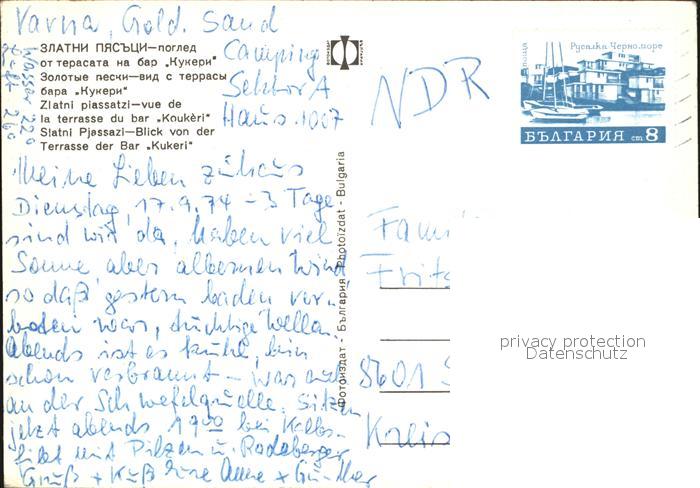 Varna, Gold. Sand
Camping
Sektor A
Haus. 1007
Wasser 22°
Luft 26°
ЗЛАТНИ ПЯСЪЦИ—поглед
от терасата на бар „Кукери"
Золотые пески—вид с террасы
бара „Кукери"
Zlatni piassatzi—vue de
la terrasse du bar „Koukèri"
Slatni Pjassazi—Blick von der
Terrasse der Bar „Kukeri"
Meine Lieben zuhaus
Dienstag, 17.9.74 – 3 Tage
sind wir da, haben viel
Sonne, aber albernen Wind
so daß gestern baden ver-
boten war, tüchtige Wellen.
Abends ist es kühl, bin
schon verbrannt – was
an der Schwefelquelle. Sitzen
jetzt abends 19⁰⁰ bei Kalbs-
filet mit Pilzen u. Radeberger
Gruß + Kuß Eure Anne + Günther
Фотоиздат - България Photoizdat - Bulgaria
NDR
поща
Русалка Черно море
БЪЛГАРИЯ ст 8
Fami
Fritz
8601 S
Kreis
privacy protection
Datenschutz